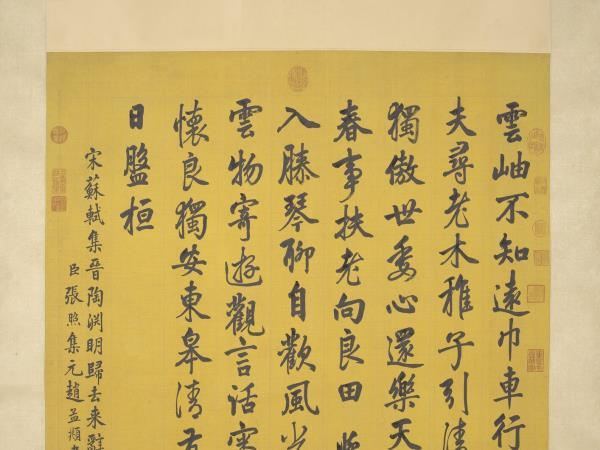 雲岫不知遠巾車行
夫尋老木稚子引清
獨傲世委心還樂天
春事扶老向良田
入膝琴聊自歡風光
雲物寄遊觀言話
懷良獨安東皋清
日盤桓
宋蘇軾集晉陶淵明歸去来辭
臣張照集元趙孟頫